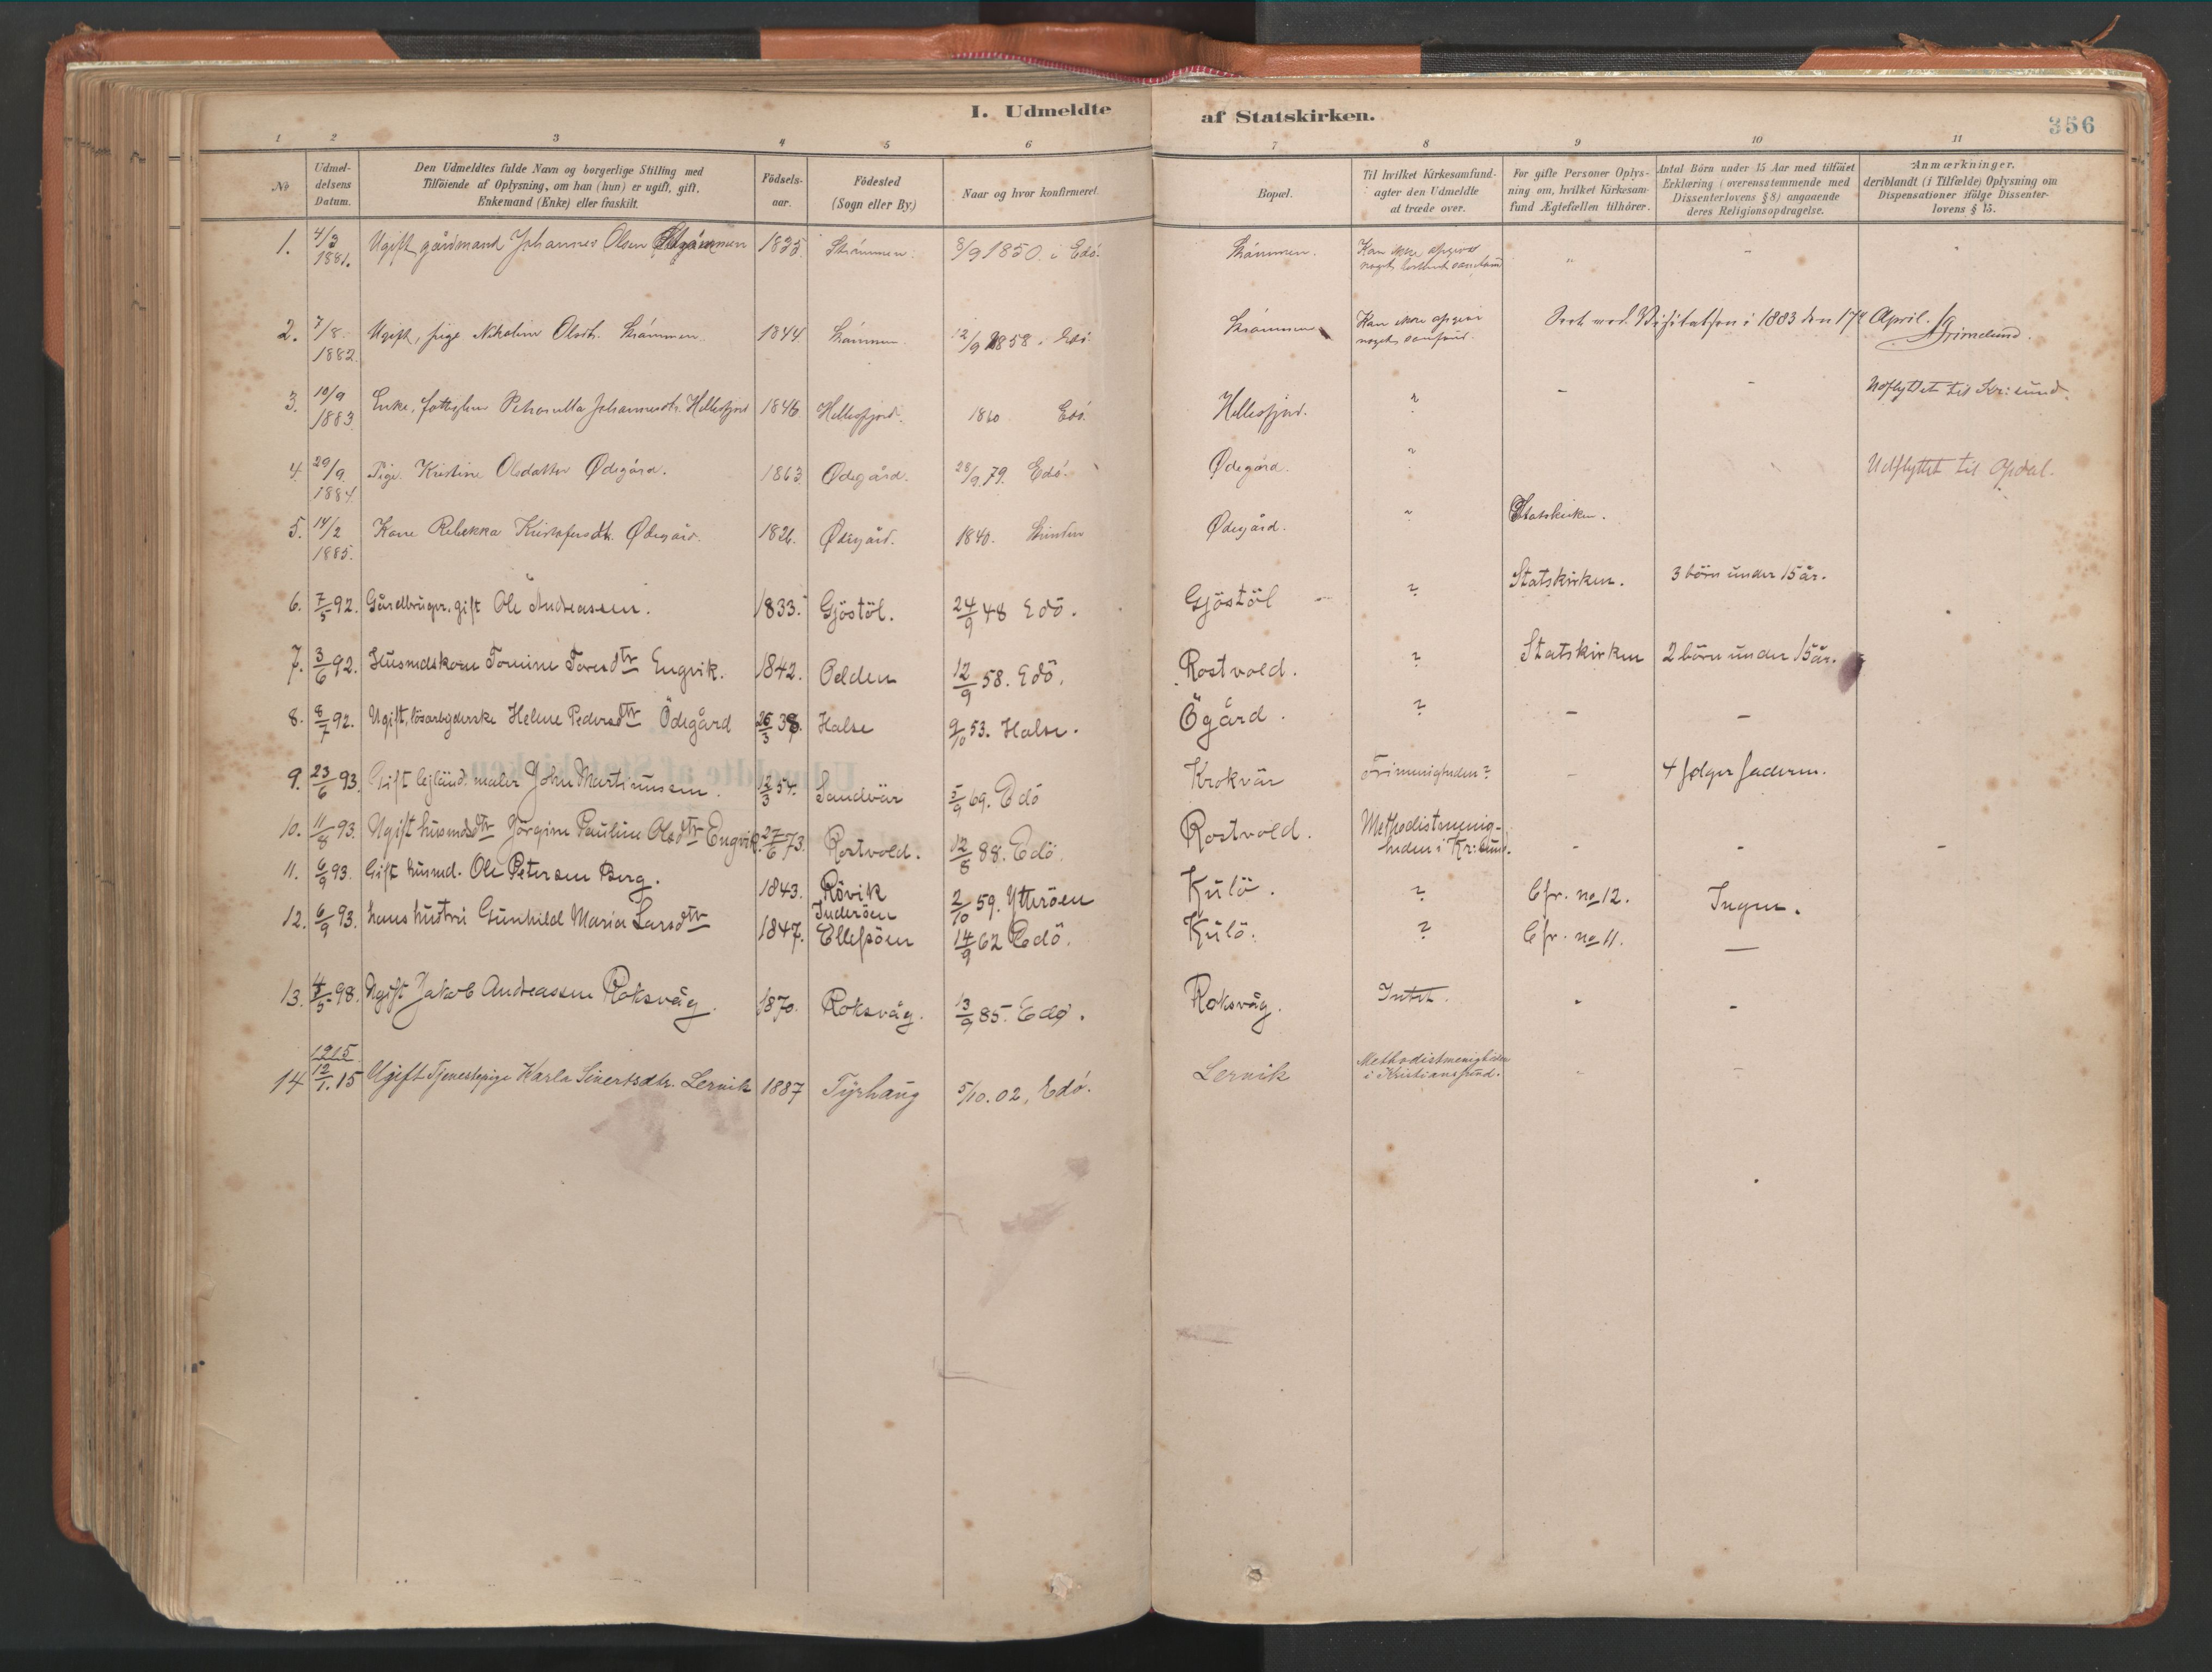 I. Udmeldte af Statskirken.
356
1 2 3 4 5 6 7 8 9 10 11
No
Udmel-
delsens
Datum.
Den Udmeldtes fulde Navn og borgerlige Stilling med
Tilföiende af Oplysning, om han (hun) er ugift, gift,
Enkemand (Enke) eller fraskilt.
Födsels-
aar.
Födested
(Sogn eller By.)
Naar og hvor konfirmeret.
Bopæl.
Til hvilket Kirkesamfund-
agter den Udmeldte
at træde over.
For gifte Personer Oplys-
ning om, hvilket Kirkesam-
fund Ægtefællen tilhörer.
Antal Börn under 15 Aar med tilföiet
Erklæring (overensstemmende med
Dissenterlovens § 8) angaaende
deres Religionsopdragelse.
Anmærkninger,
deriblandt (i Tilfælde) Oplysning om
Dispensationer ifölge Dissenter-
lovens § 15.
1. 4/3 1881. Ugift gårdmand Johannes Olsen 1835. 8/9 1850. i Edö. Kan ikke
2. 7/8 1882. Ugift, pige Olsdtr. 1844. 12/9 1858. Edö. Kan ikke opgive
noget samfund. Seet ved Visitatsen i 1883 den 17de April. Grimelund.
3. 10/9 1883. Enke, Johannesdtr. Hellesfjord 1846. Hellesfjord. 1860 Edö. Hellesfjord. " - - Udflyttet til Kr:sund.
4. 29/9 1884. Pige Kristine Olsdatter Ødegård. 1863. Ødegård. 28/9.79. Edö. Ødegård. " Udflyttet til Opdal.
5. 14/2 1885. Kone Rebekka Kristofersdtr. Ødegård. 1826. Ødegård. 1840. Ødegård. " Statskirken.
6. 7/5 92. Gårdbruger, gift Ole Andreassen. 1833. Gjöstöl. 24/9 48 Edö. Gjöstöl ? Statskirken. 3 börn under 15 år.
7. 3/6 92. Husmdskone Tomine Toresdtr Engvik. 1842. Odden 12/9 58. Edö. Rostvold. ? Statskirken 2 börn under 15 år.
8. 8/7 92. Ugift, lösarbyderske Helene Pedersdtr Ödegård 26/3 38. Halse 9/10 53. Halse. Ögård. ? - -
9. 23/6 93. Gift lejländ. maler John Martinussen. 12/3 54. Sandvär 5/9 69. Edö Krokvär Frimenigheden? - 4 fölger faderen.
10. 11/8 93. Ugift husmdsdtr Jörgine Pauline Olsdtr Engvik. 27/6 73. Rostvold. 12/8 88. Edö. Rostvold. Methodistmenig-
heden i Kr:sund. - - -
11. 6/9 93. Gift husmd. Ole Petersen Berg. 1843. Rövik
Inderöen 2/10 59. Ytteröen Kulö. ? Cfr. no 12. Ingen.
12. 6/9 93. hans hustru Gunhild Maria Larsdtr 1847. Ellefsöen 14/9 62 Edö. Kulö. ? Cfr. no 11. -
13. 4/5 98. Ugift Jakob Andreassen Roksvåg. 1870. Roksvåg. 13/9 85. Edø. Roksvåg. Intet. - -
1915
14 12/1. 15 Ugift Tjenestepige Karla Sivertsdtr. Lervik 1887 Tyrhaug 5/10.02, Edö. Lervik Methodistmenigheden
i Kristianssund. - -